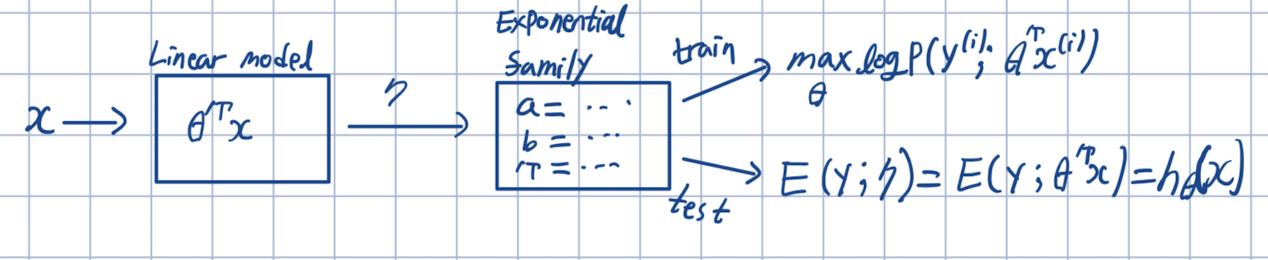 Linear model
x → θᵀx
η →
Exponential
family
a = ...
b = ...
T = ...
train
max log P(y⁽ⁱ⁾; θᵀx⁽ⁱ⁾)
θ
test
E(y;η) = E(y;θᵀx) = hθ(x)